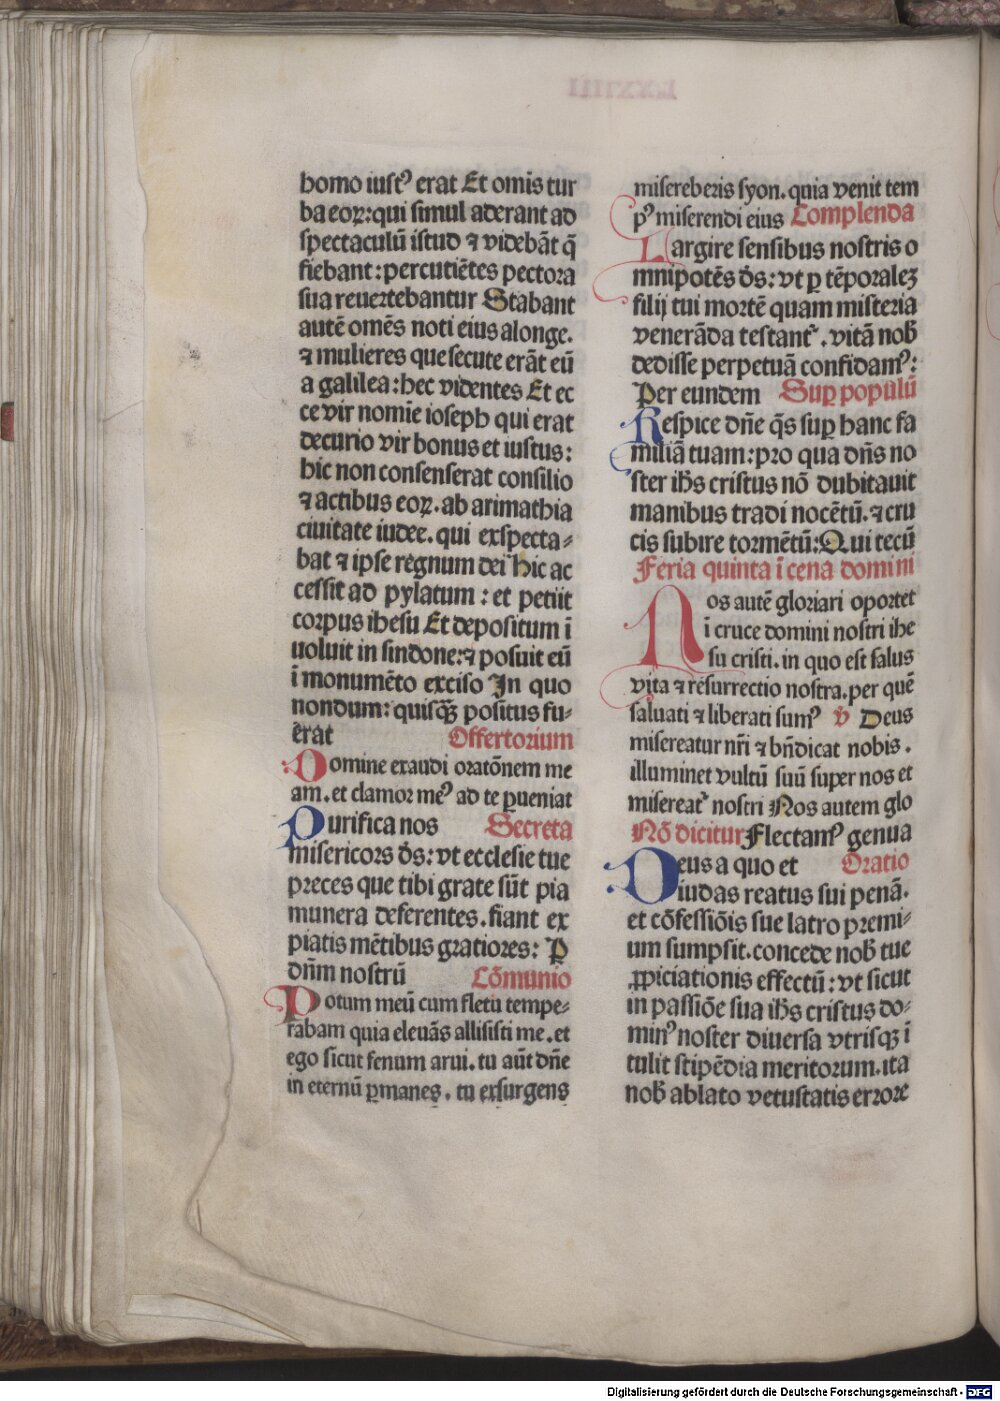 homo iustꝰ erat Et omīs tur
ba eoꝝ: qui simul aderant ad
spectaculū istud ⁊ videbāt q̄
fiebant: percutiētes pectora
sua reuertebantur Stabant
autē omēs noti eius alonge.
⁊ mulieres que secute erāt eū
a galilea: hec videntes Et ec
ce vir nomīe ioseph qui erat
decurio vir bonus et iustus:
hic non consenserat consilio
⁊ actibus eoꝝ. ab arimathia
ciuitate iudee. qui exspecta⸗
bat ⁊ ipse regnum dei hic ac
cessit ad pylatum: et petiit
corpus ihesu Et depositum ī
uoluit in sindone: ⁊ posuit eū
ī monumēto exciso In quo
nondum: quisqꝫ positus fu⸗
erat Offertorium
Domine exaudi oratōnem me
am. et clamor meꝰ ad te ꝑueniat
Purifica nos Secreta
misericors ds̄: vt ecclesie tue
preces que tibi grate sūt pia
munera deferentes. fiant ex
piatis mētibus gratiores: P
dn̄m nostrū Cōmunio
Potum meū cum fletu tempe⸗
rabam quia eleuās allisisti me. et
ego sicut fenum arui. tu aūt dn̄e
in eternū ꝑmanes. tu exsurgens
misereberis syon. quia venit tem
pꝰ miserendi eius Complenda
Largire sensibus nostris o
mnipotēs ds̄: vt ꝑ tēporalez
filij tui mortē quam misteria
venerāda testantᷣ. vitā nob̄
dedisse perpetuā confidamꝰ:
Per eundem Suꝑ populū
Respice dn̄e q̄s suꝑ hanc fa
miliā tuam: pro qua dn̄s no
ster ih̄s cristus nō dubitauit
manibus tradi nocētū. ⁊ cru
cis subire tormētū: Qui tecū
Feria quinta ī cena domini
Nos autē gloriari oportet
ī cruce domini nostri ihe
su cristi. in quo est salus
vita ⁊ resurrectio nostra. per quē
saluati ⁊ liberati sumꝰ v̄ Deus
misereatur nr̄i ⁊ bn̄dicat nobis.
illuminet vultū suū super nos et
misereatᷣ nostri Nos autem glo
Nō dicitur Flectamꝰ genua
Deus a quo et Oratio
iudas reatus sui penā.
et cōfessiōis sue latro premi⸗
um sumpsit. concede nob̄ tue
ꝓpiciationis effectū: vt sicut
in passiōe sua ih̄s cristus do⸗
minꝰ noster diuersa vtrisqꝫ ī
tulit stipēdia meritorum. ita
nob̄ ablato vetustatis errore
LXXIIII
Digitalisierung gefördert durch die Deutsche Forschungsgemeinschaft - DFG